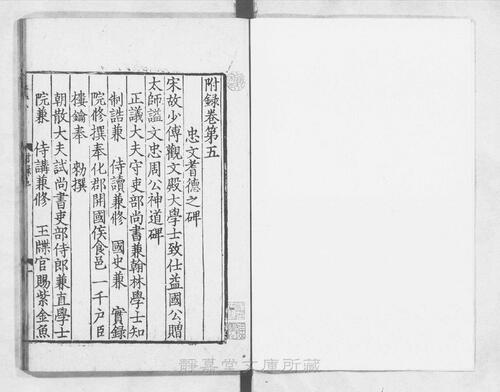 附録卷第五
忠文耆德之碑
宋故少傅觀文殿大學士致仕益國公贈
太師謚文忠周公神道碑
正議大夫守吏部尚書兼翰林學士知
制誥兼 侍讀兼修 國史兼 實録
院修撰奉化郡開國侯食邑一千户臣
樓鑰奉 勑撰
朝散大夫試尚書吏部侍郎兼直學士
院兼 侍講兼修 玉牒官賜紫金魚
靜嘉堂文庫所藏